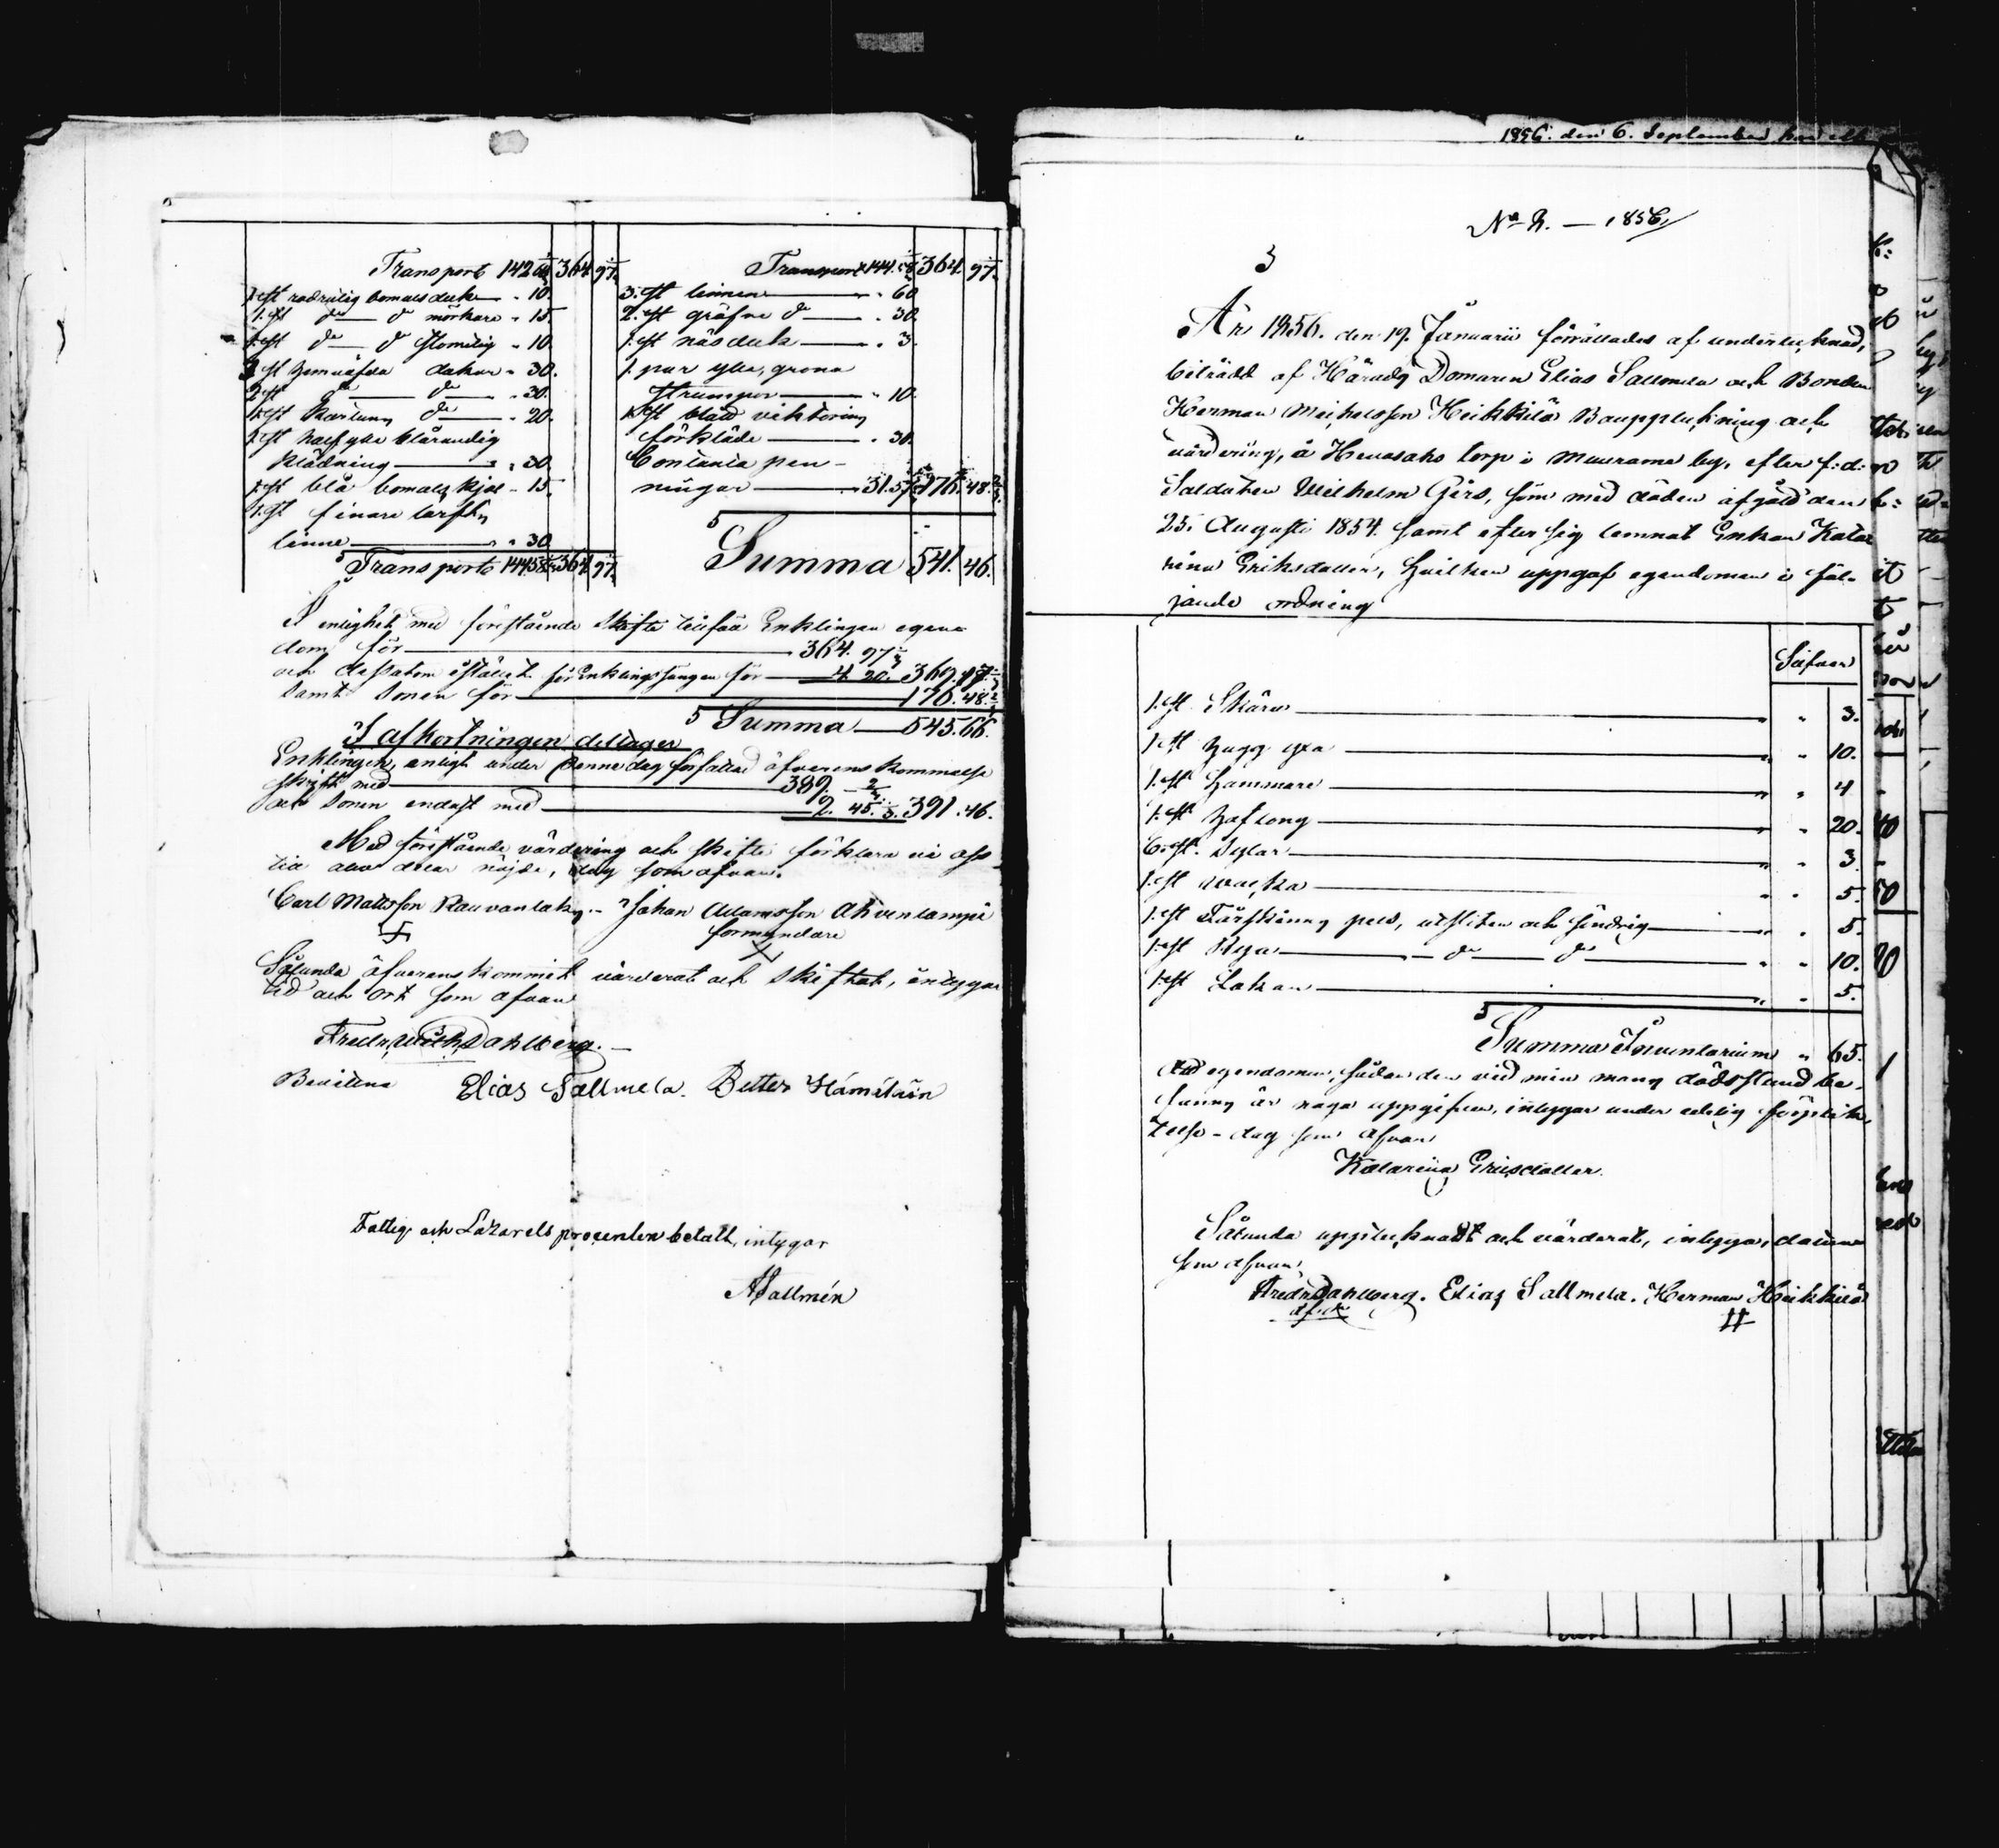 Transport 142 364 97
1. st rödrutig bomuls duk — " 10.
1. st do — do mörkare " 15.
1. st do — do blomig " 10.
3 st hemväfda dukar " 30.
2 st do — do — " 30.
1. st kartuns do — " 20.
1. st half ylle blårandig
klädning — " 30
1. st blå bomuls kjol — 15.
1. st finare lärfts
linne — " 30
Transport 144.58 364 97
Transport 144.58 364. 97
3. st linnen — " 60
2. st gröfre do — " 30.
1. st näsduk — " 3.
1. par ylle, gröna
strumpor — " 10.
1. st blått viktoriny
förkläde — " 30.
Contanta pen-
ningar — 31.57 176. 48.
Summa 541. 46.
I enlighet med förestående skifte tillföll Enklingen egen-
dom för — 364. 97
och dessutom för Enklings sängen för — 4 20. 369. 17.
samt sonen för — 176. 48.
Summa — 545. 66.
I afkortningen deltager
Enklingen, enligt under denne dag författad öfverenskommelse
skrift med — 389.
och sonen endast med — 2. 45. 391. 46.
Med förestående värdering och skifte förklara vi oss
till alla delar nöjde, dag som ofvan.
Carl Mattsson Rauvanlaks — Johan Adamsson Ahvenlampi
förmyndare
Sålunda öfverenskommit värderat och skiftat, intyga
tid och ort som ofvan
Fredr. Wilh. Dahlberg. —
Bevittna Elias Sallmela. Petter Hämäläin
Fattig och Lazaretts procenten betalt, intygar
A Sallmén
1856. den 6. September
No 2. — 1856.
3
År 1856. den 19. Januarii förrättades af undertecknad,
biträdd af Härads Domaren Elias Sallmela och Bonden
Herman Michelsson Heikkilä Bouppteckning och
värdering, å Hevosaho torp i Muurame by, efter f: d:
Soldaten Wilhelm Gers, som med döden afgått den
25. Augusti 1854. samt efter sig lemnat Enkan Kata-
rina Eriksdotter, hvilken uppgaf egendomen i föl-
jande ordning
Silfver
1. st Skära — " " 3.
1. st hugg yxa — " " 10.
1. st hammare — " " 4
1. st — " " 20.
6. st. sylar — " " 3
1. st — " " 5.
1. st Fårskinns pels, utsliten och söndrig — " " 5.
1. st Rya — do — do — " " 10.
1. st Lakan — " " 5.
Summa Inventarium " 65.
Att egendomen, sådan den vid min mans dödsstund be-
fanns är noga uppgifven, intygar under edelig förplik-
telse — dag som ofvan
Katarina Eriksdotter.
Sålunda upptecknadt och värderat, intyga, datum
som ofvan,
Fredr Dahlberg. Elias Sallmela. Herman Heikkilä